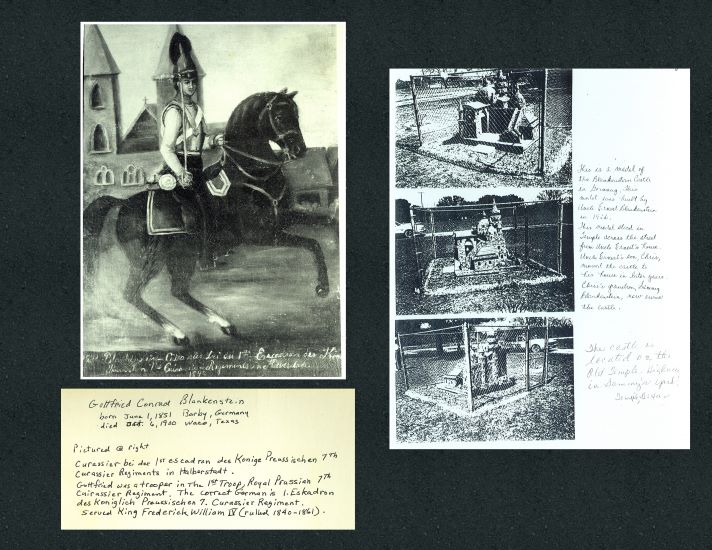 Gottfried Conrad Blankenstein
born June 1, 1851 Barby, Germany
died Oct. 6, 1900 Waco, Texas
Pictured @ right
Curassier bei der 1st escadran des Konige Preussischen 7th
Curassier Regiments in Halberstadt.
Gottfried was a trooper in the 1st Troop, Royal Prussian 7th
Cairassier Regiment. The correct German is 1. Eskadron
des Koniglich Preussischen 7. Curassier Regiment.
Served King Frederick William IV (ruled 1840-1861).
This is a model of
the Blankenstein Castle
in Germany. This
model was built by
Uncle Ernest Blankenstein
in
This model stood in
Temple across the street
from Uncle Ernest's house.
Uncle Ernest's son, Chris,
moved the castle to
his house in later years.
Chris's grandson, Sammy
Blankenstein, now owns
the castle.
The castle is
located on the
Old Temple Highway
in Sammy's yard.